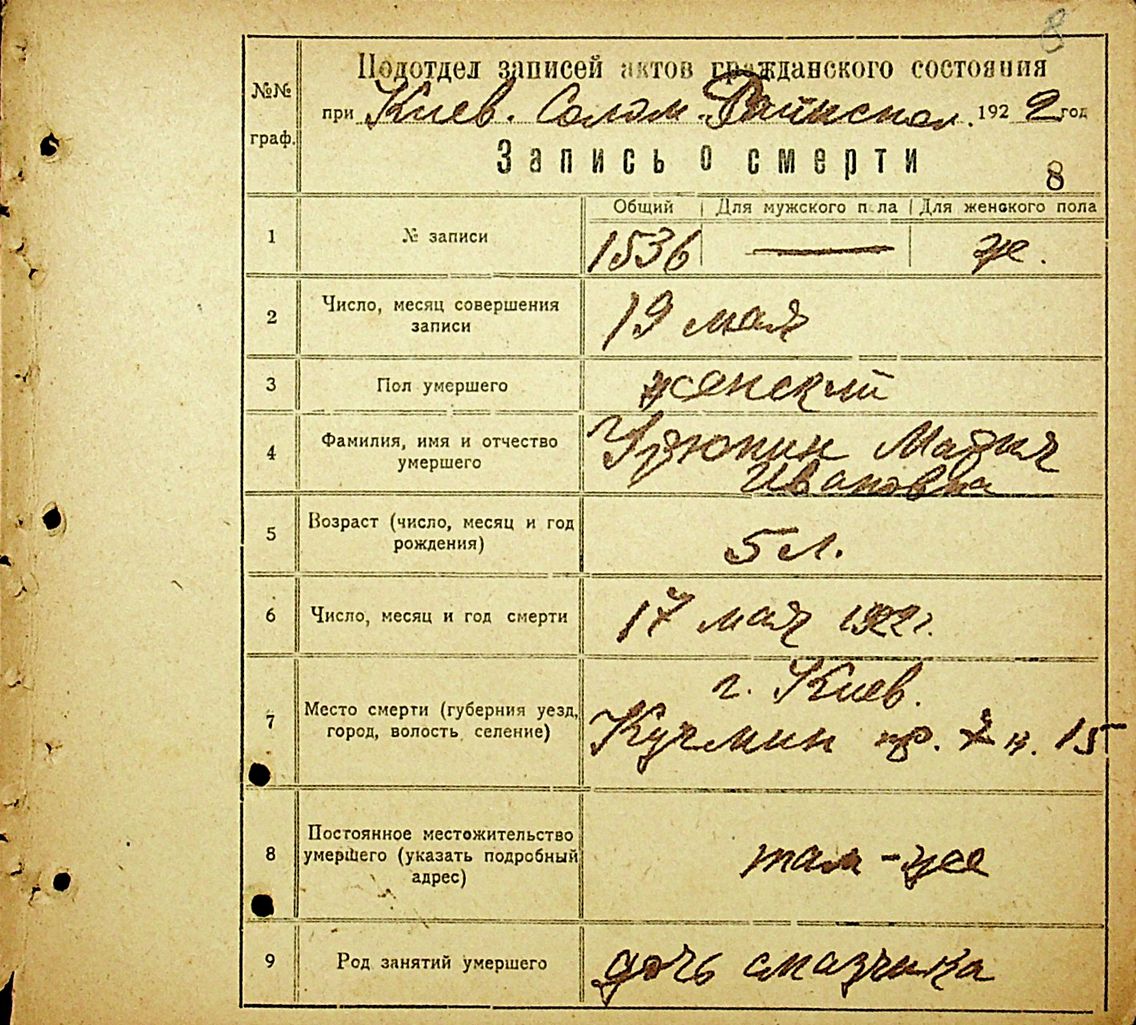 8
№№ граф.
Подотдел записей актов гражданского состояния
при Киев. Солом. Райисполк. 1922 год
Запись о смерти
8
Общий | Для мужского пола | Для женского пола
1 № записи 1536 — ж.
2 Число, месяц совершения
записи
19 мая
3 Пол умершего женский
4 Фамилия, имя и отчество
умершего
Ивановна
5 Возраст (число, месяц и год
рождения)
5 л.
6 Число, месяц и год смерти 17 мая 1922 г.
7 Место смерти (губерния уезд,
город, волость, селение)
г. Киев.
Кучмин пр. 15
8 Постоянное местожительство
умершего (указать подробный
адрес)
там-же
9 Род занятий умершего дочь смазчика